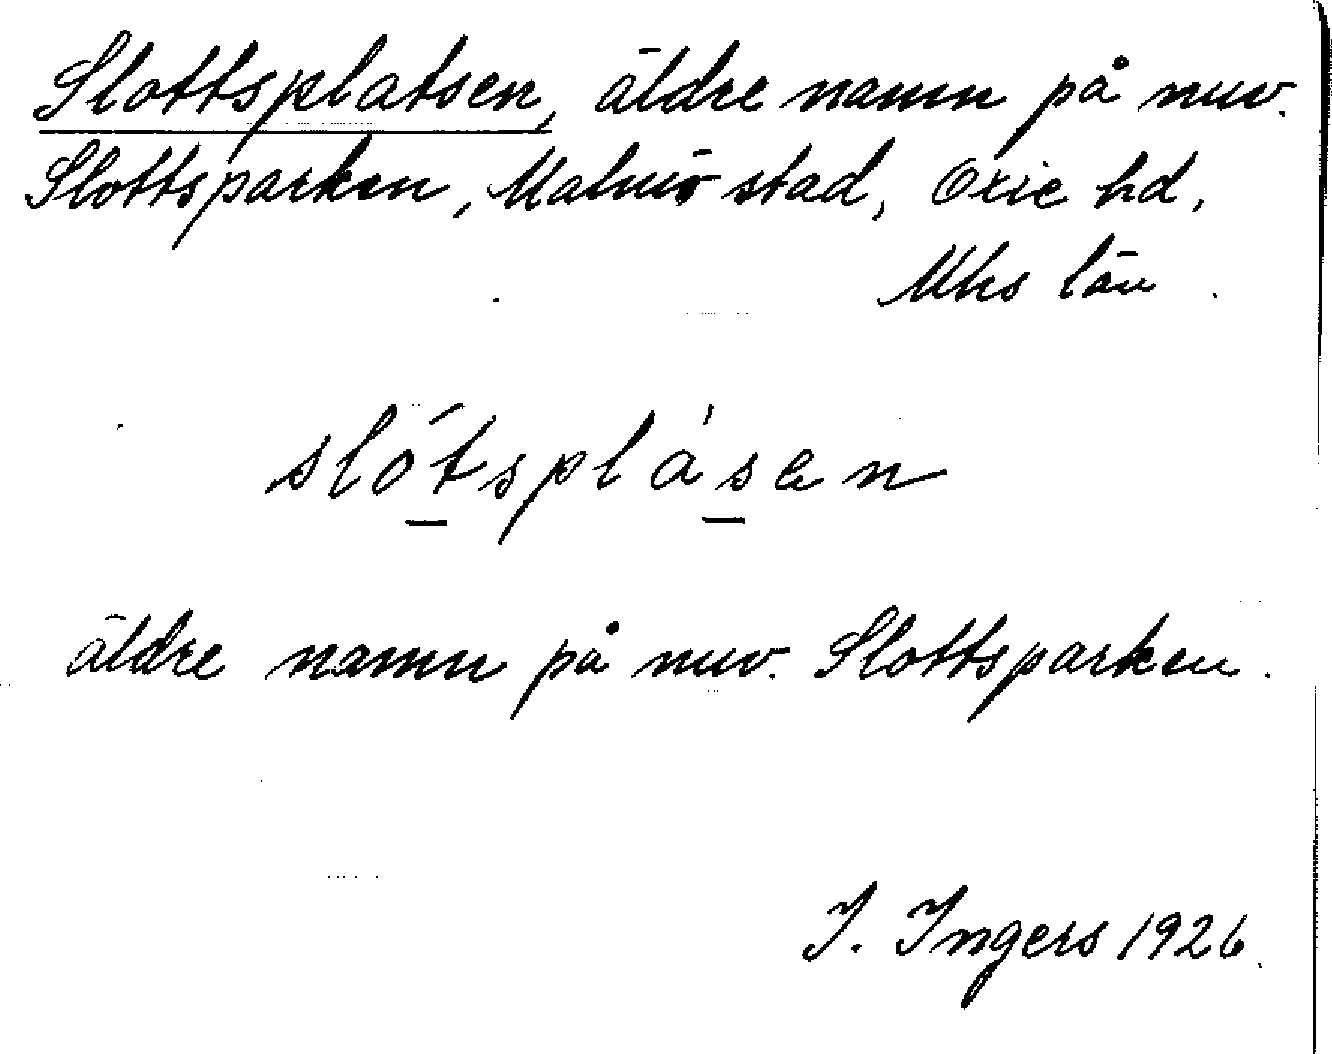 Slottsplatsen, äldre namn på nuv.
Slottsparken, Malmö stad, Oxie hd,
Mhs län
slótsplásen
äldre namn på nuv. Slottsparken.
I. Ingers 1926.